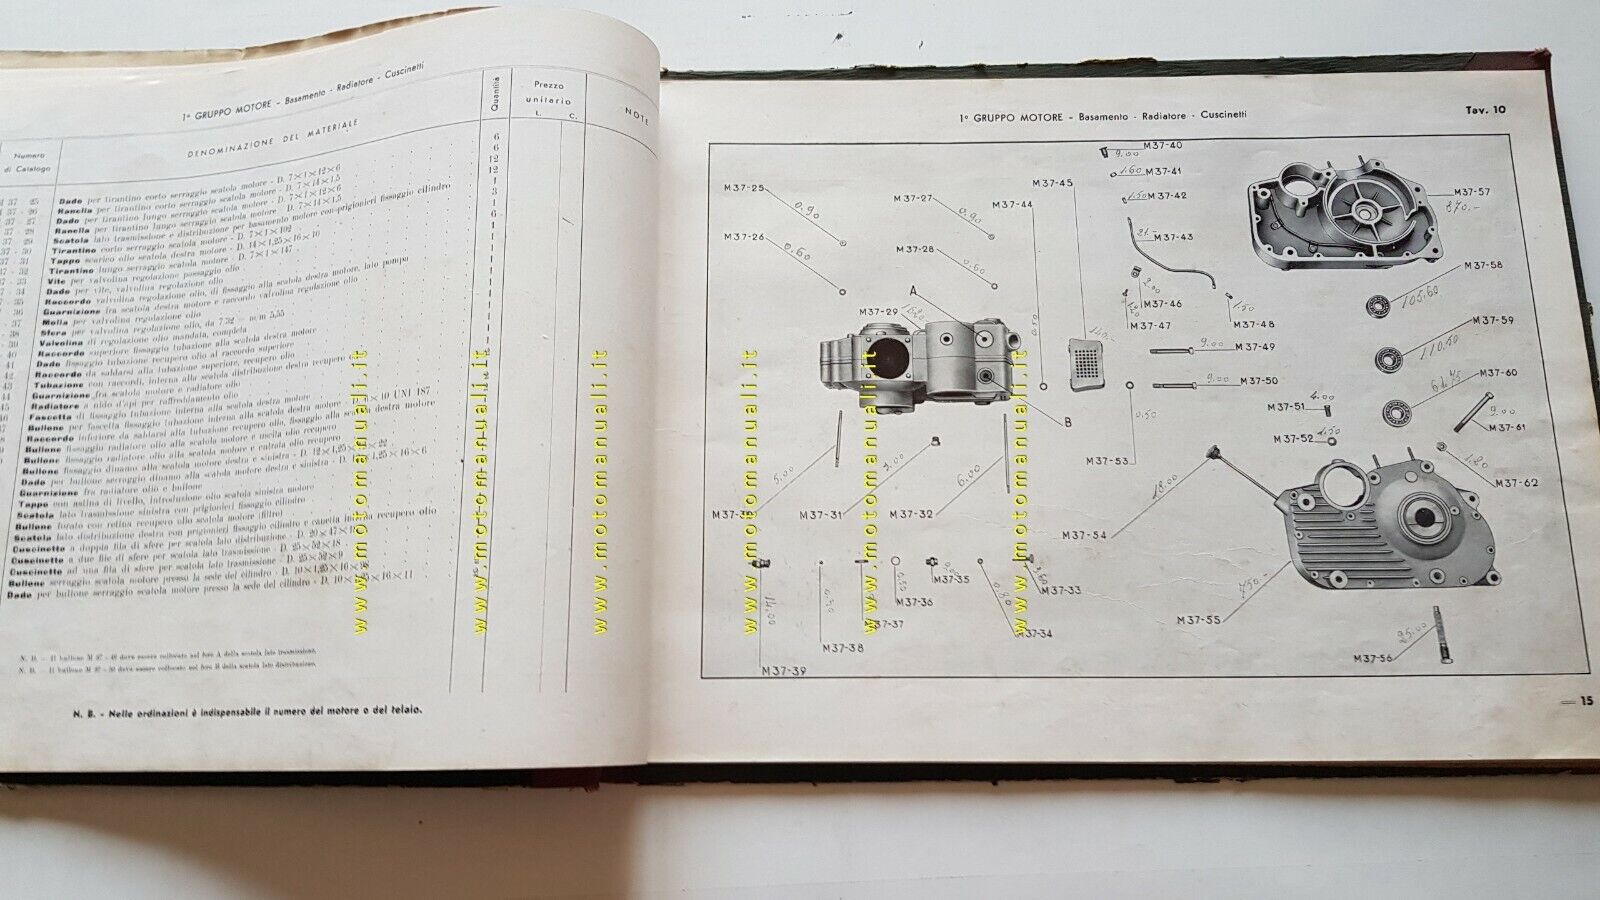 1º GRUPPO MOTORE - Basamento - Radiatore - Cuscinetti
Numero
di Catalogo
DENOMINAZIONE DEL MATERIALE
Quantità
Prezzo
unitario
L. C.
NOTE
37 - 25 Dado per tirantino corto serraggio scatola motore - D. 7×1×12×6 6
37 - 26 Ranella per tirantino corto serraggio scatola motore - D. 7×14×1,5 6
37 - 27 Dado per tirantino lungo serraggio scatola motore - D. 7×1×12×6 12
37 - 28 Ranella per tirantino lungo serraggio scatola motore - D. 7×14×1,5 12
37 - 29 Scatola lato trasmissione e distribuzione per basamento motore con prigionieri fissaggio cilindro 1
37 - 30 Tirantino corto serraggio scatola motore - D. 7×1×102 3
37 - 31 Tappo scarico olio scatola destra motore - D. 14×1,25×16×10 1
37 - 32 Tirantino lungo serraggio scatola motore - D. 7×1×147 6
- 33 Vite per valvolina regolazione passaggio olio 1
- 34 Dado per vite, valvolina regolazione olio
- 35 Raccordo valvolina regolazione olio, di fissaggio alla scatola destra motore, lato pompa
- 36 Guarnizione fra scatola destra motore e raccordo valvolina regolazione olio
- 37 Molla per valvolina regolazione olio
- 38 Sfera per valvolina regolazione olio, da 7/32 = mm 5,55
- 39 Valvolina di regolazione olio mandata, completa
40 Raccordo superiore fissaggio tubazione alla scatola destra motore
41 Dado fissaggio tubazione recupero olio al raccordo superiore
42 Raccordo da saldarsi alla tubazione superiore, recupero olio
43 Tubazione con raccordi, interna alla scatola destra recupero
44 Guarnizione fra scatola motore e radiatore olio
45 Radiatore a nido d'api per raffreddamento olio
Fascetta di fissaggio tubazione interna alla scatola destra motore
Bullone per fascetta fissaggio tubazione interna alla scatola destra motore - D. 10 UNI 187
Raccordo inferiore da saldarsi alla tubazione recupero olio, fissaggio alla scatola destra motore
Bullone fissaggio radiatore olio alla scatola motore e uscita olio recupero
Bullone fissaggio radiatore olio alla scatola motore e entrata olio recupero
Bullone fissaggio dinamo alla scatola motore destra e sinistra - D. 12×1,25
Dado per bullone serraggio dinamo alla scatola motore destra e sinistra - D. 1,25×16×6
Guarnizione fra radiatore olio e bullone
Tappo con astina di livello, introduzione olio scatola sinistra motore
Scatola lato trasmissione sinistra con prigionieri fissaggio cilindro
Bullone forato con retina recupero olio scatola motore (filtro)
Scatola lato distribuzione destra con prigionieri fissaggio cilindro e canetta interna recupero olio
Cuscinetto a doppia fila di sfere per scatola lato distribuzione - D. 20×47×
Cuscinetto a due file di sfere per scatola lato trasmissione - D. 25×52×18
Cuscinetto ad una fila di sfere per scatola lato trasmissione - D. 25×52×9
Bullone serraggio scatola motore presso la sede del cilindro - D. 10×1,25×16
Dado per bullone serraggio scatola motore presso la sede del cilindro - D. 10×1,25×16×11
N. B. - Il bullone M 37 - 49 deve essere collocato nel foro A della scatola lato trasmissione.
N. B. - Il bullone M 37 - 50 deve essere collocato nel foro B della scatola lato distribuzione.
N. B. - Nelle ordinazioni è indispensabile il numero del motore o del telaio.
www.motomanuali.it
www.motomanuali.it
www.motomanuali.it
1º GRUPPO MOTORE - Basamento - Radiatore - Cuscinetti
Tav. 10
M37-40
9.00
M37-41
1.60
M37-42
1.50
M37-25
0.90
M37-27
0.90
M37-44
M37-45
M37-57
870.-
M37-26
0.60
M37-28
0.60
M37-43
21.-
M37-58
105.60
A
M37-46
2.00
M37-47
M37-48
1.50
M37-29
M37-59
110.50
M37-49
9.00
M37-50
9.00
0.50
M37-60
M37-51
4.00
M37-61
9.00
B
0.50
M37-52
1.50
M37-53
M37-62
1.20
5.00
6.00
18.00
M37-31
M37-32
M37-54
M37-33
M37-35
M37-36
M37-37
M37-34
0.80
M37-38
M37-39
14.00
M37-55
750.-
M37-56
25.00
www.motomanuali.it
www.motomanuali.it
www.motomanuali.it
— 15